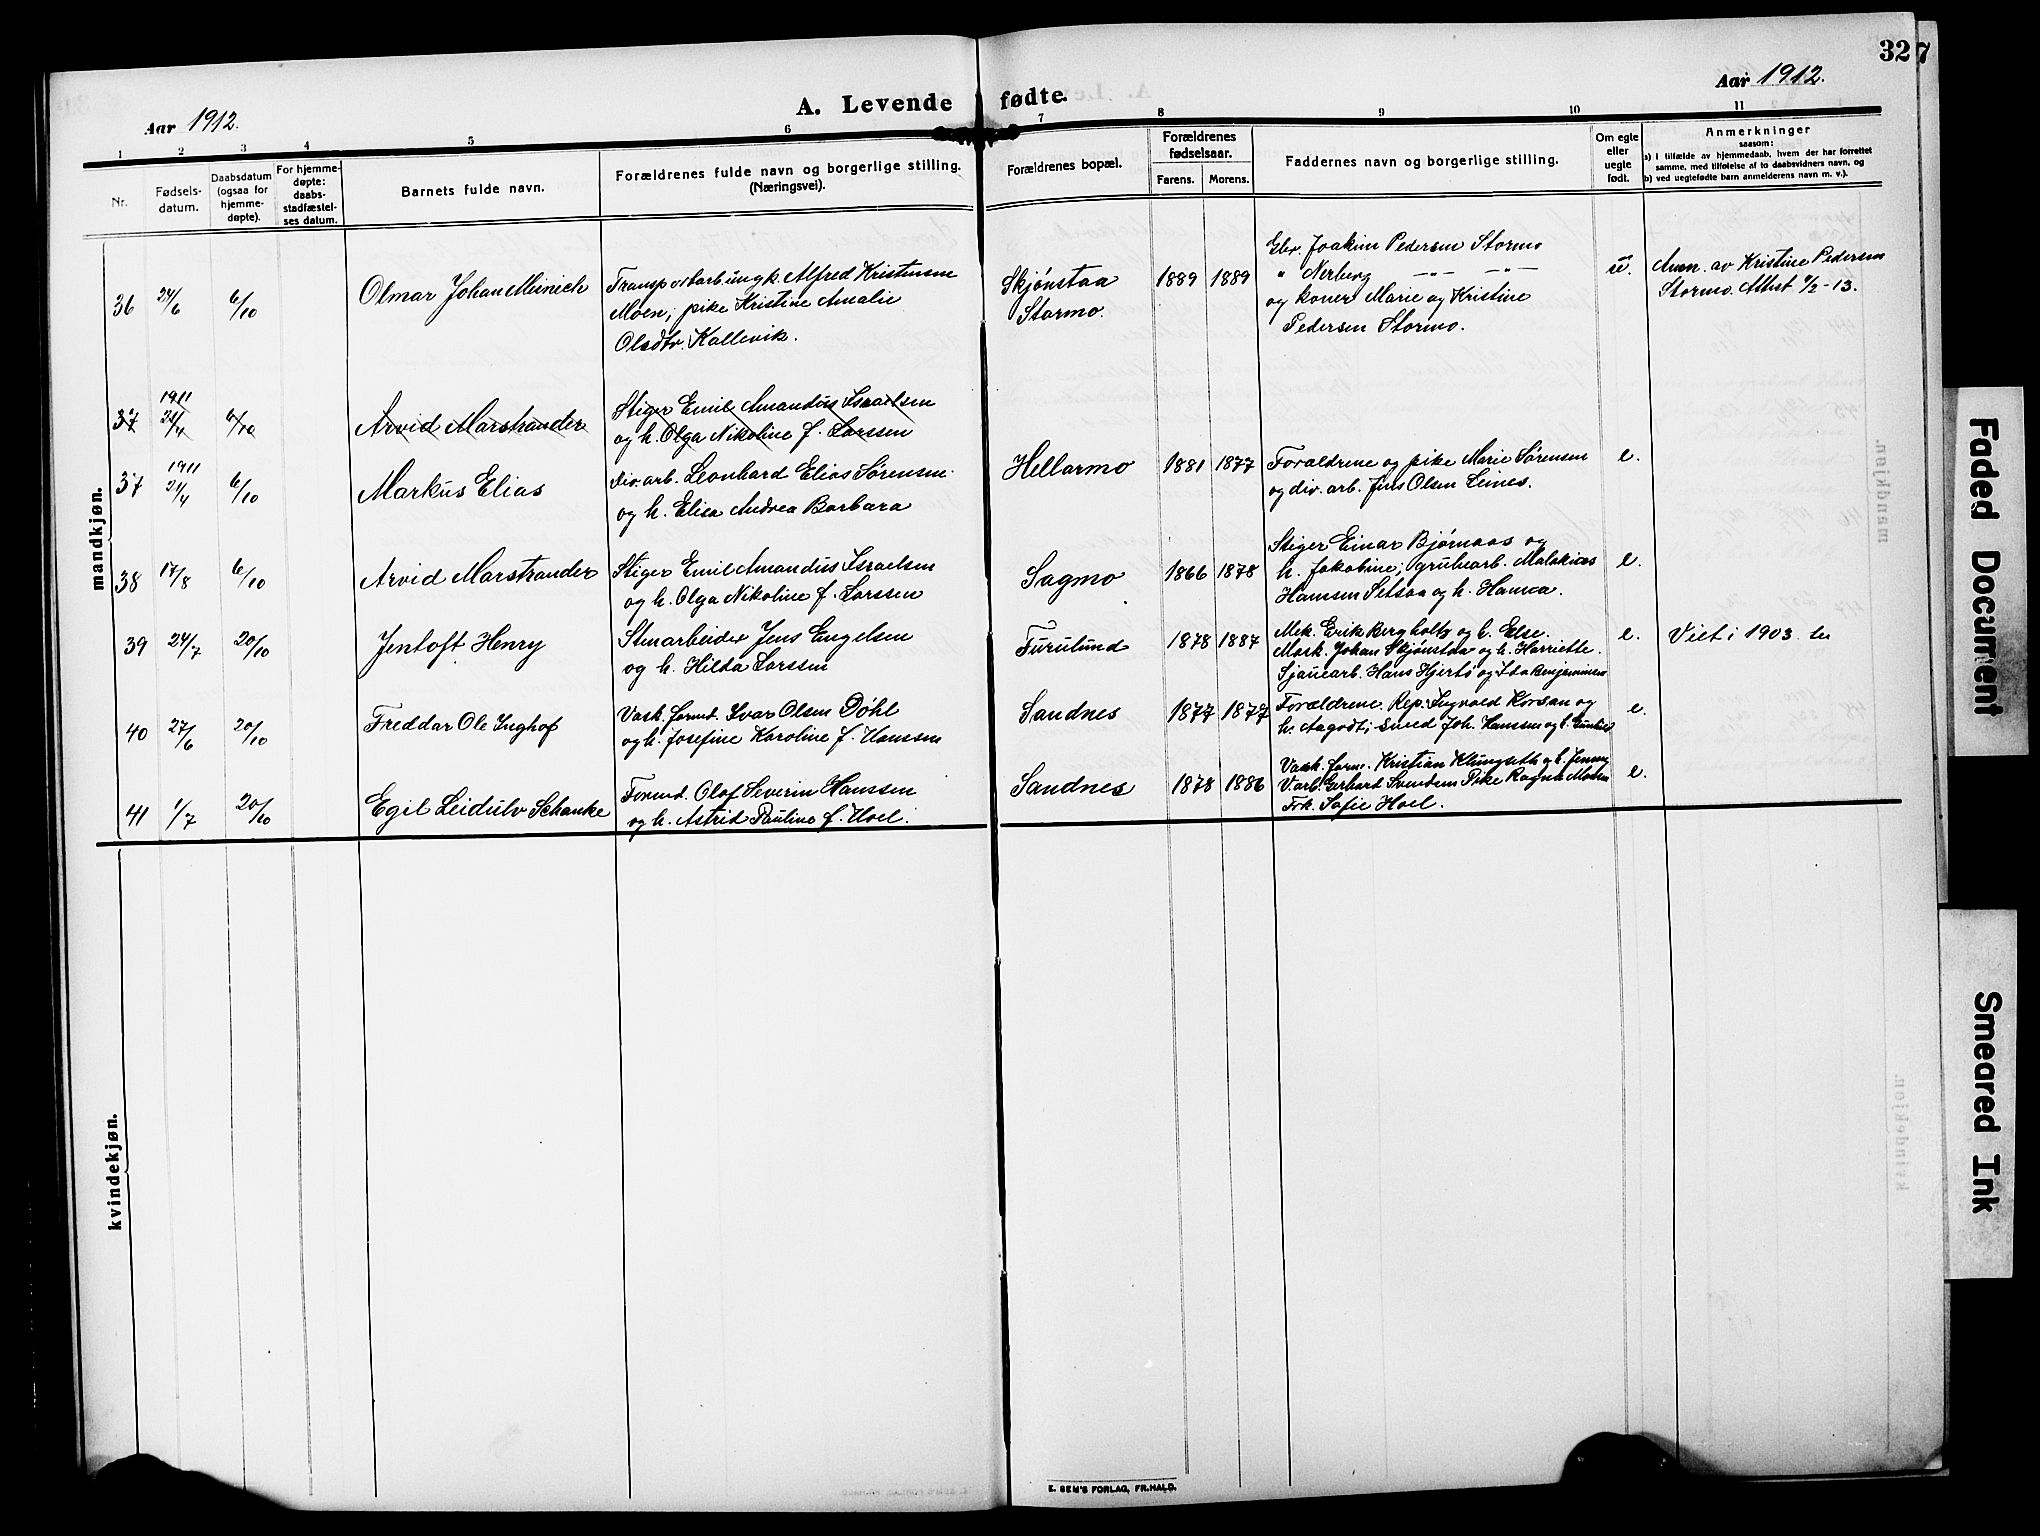 32 7
A. Levende fødte.
Aar 1912.
Aar 1912.
1 2 3 4 5 6 7 8 9 10 11
Nr.
Fødsels-
datum.
Daabsdatum
(ogsaa for
hjemme-
døpte).
For hjemme-
døpte:
daabs
stadfæstel-
ses datum.
Barnets fulde navn.
Forældrenes fulde navn og borgerlige stilling.
(Næringsvei).
Forældrenes bopæl.
Forældrenes
fødselsaar.
Farens. Morens.
Faddernes navn og borgerlige stilling.
Om egte
eller
uegte
født.
Anmerkninger
saasom:
a) i tilfælde av hjemmedaab, hvem der har forrettet
samme, med tilføielse af to daabsvidners navn, og
b) ved uegtefødte barn anmelderens navn m. v.).
mandkjøn.
36 24/6 6/10 Olmar Johan Meinich
Transportarb. ungk. Alfred Kristensen
Moen; pike Kristine Amalie
Olsdtr. Kallevik.
Skjønstaa
Stormo.
1889 1889
Gbr. Joakim Pedersen Stormo
" Nerberg — " — — " —
og koner Marie og Kristine
Pedersen Stormo.
u.
Anm. av Kristine Pedersen
Stormo. Attest 1/2-13.
1911
37 21/4 6/10 Arvid Marstrander
Stiger Emil Amandus Israelsen
og h. Olga Nikoline f. Larssen
1911
37 21/4 6/10 Markus Elias
Div. arb. Leonhard Elias Sørensen
og h. Elisa Andrea Barbara
Hellarmo 1881 1877
Forældrene og pike Marie Sørensen
og div. arb. Jens Olsen Leines.
e.
38 17/8 6/10 Arvid Marstrander
Stiger Emil Amandus Israelsen
og h. Olga Nikoline f. Larssen
Sagmo 1866 1878
Stiger Einar Bjørnaas og
h. Jakobine; grubearb. Malakias
Hanssen Setsaa og h. Hanna.
e.
39 24/7 20/10 Jentoft Henry
Stenarbeider Jens Engelsen
og h. Hilda Larssen
Furulund 1878 1887
Mek. Erik Bergholtz og h. Else.
Mask. Johan Skjønstaa og h. Harriette.
Sjauearb. Hans Hjertø og Ida Benjaminsen
e.
Viet i 1903
40 27/6 20/10 Freddar Ole Inghof
Vask. formd. Ivar Olsen Døhl
og h. Josefine Karoline f. Hanssen
Sandnes 1877 1877
Forældrene. Rep. Sigvald Korsan og
h. Aagodt; smed Joh. Hanssen og h.
e.
41 1/7 20/10 Egil Leidulv Schanke
Formd. Olaf Severin Hanssen
og h. Astrid Pauline f. Hoel.
Sandnes 1878 1886
Vask. form. Kristian Klungseth og h. Jenny
V. arb. Gerhard Svendsen Pike Ragna Moen
Frk. Sofie Hoel.
e.
kvindekjøn.
E. SEM'S FORLAG, FR.HALD.
Faded Document
Smeared Ink